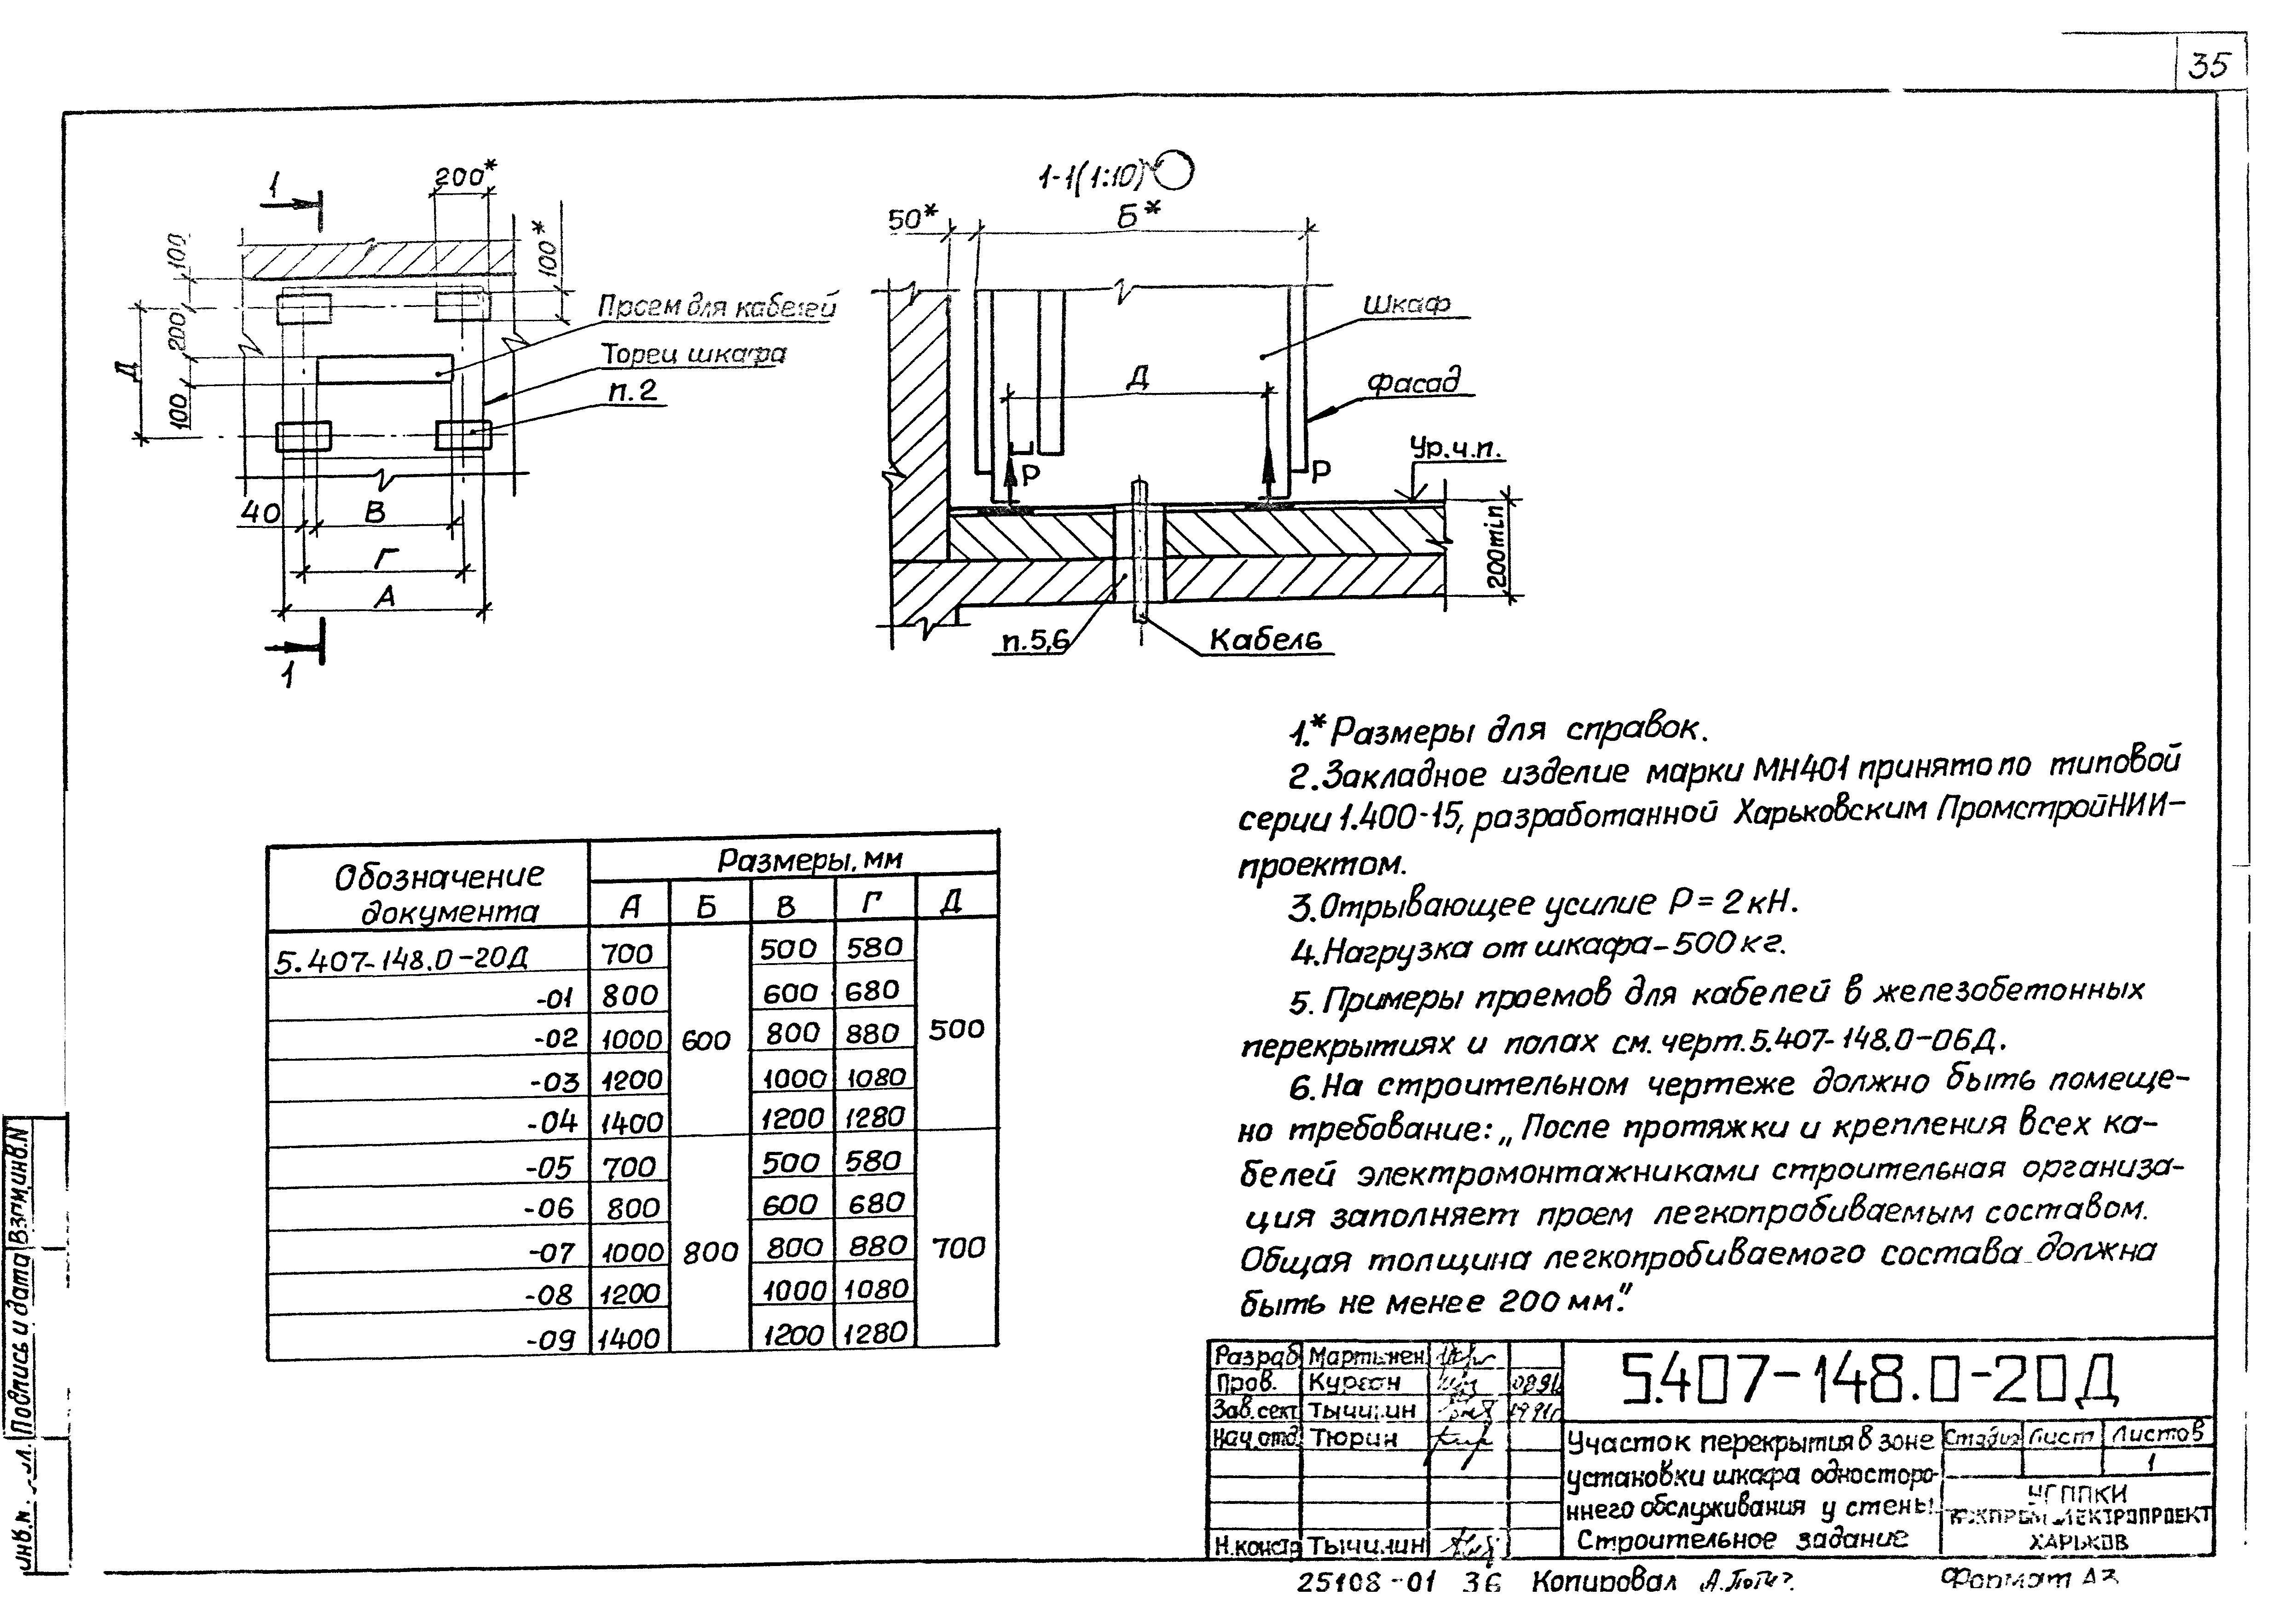 35
1
200*
100*
100
200
100
Д
Проем для кабелей
Торец шкафа
п.2
40
В
Г
А
1
1-1(1:10)
50*
Б*
Шкаф
Д
Фасад
Ур.ч.п.
Р
Р
200min
п.5,6
Кабель
1.* Размеры для справок.
2. Закладное изделие марки МН401 принято по типовой
серии 1.400-15, разработанной Харьковским ПромстройНИИ-
проектом.
3. Отрывающее усилие Р = 2 кН.
4. Нагрузка от шкафа - 500 кг.
5. Примеры проемов для кабелей в железобетонных
перекрытиях и полах см. черт. 5.407-148.0-06Д.
6. На строительном чертеже должно быть помеще-
но требование: „После протяжки и крепления всех ка-
белей электромонтажниками строительная организа-
ция заполняет проем легкопробиваемым составом.
Общая толщина легкопробиваемого состава должна
быть не менее 200 мм."
Обозначение документа Размеры, мм
А Б В Г Д
5.407-148.0-20Д 700 600 500 580 500
-01 800 600 680
-02 1000 800 880
-03 1200 1000 1080
-04 1400 1200 1280
-05 700 800 500 580 700
-06 800 600 680
-07 1000 800 880
-08 1200 1000 1080
-09 1400 1200 1280
Разраб.
Пров. Курган 08.91
Зав.сект. Тычинин
Нач.отд. Тюрин
Н.констр. Тычинин
5.407-148.0-20Д
Участок перекрытия в зоне
установки шкафа односторо-
ннего обслуживания у стены.
Строительное задание
Стадия Лист Листов
1
ХАРЬКОВ
Инв.N
Подпись и дата
Взам.инв.N
25108-01 36 Копировал Формат А3